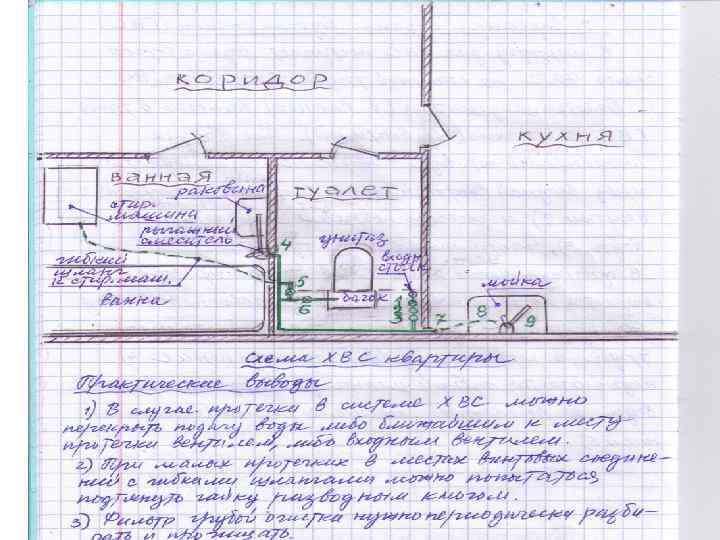 КОРИДОР
КУХНЯ
ВАННАЯ
раковина
ТУАЛЕТ
стир.
машина
рычажный
смеситель
4
унитаз
входн
стояк
гибкий
шланг
к стир.маш.
ванна
5
6
бачок
1
2
3
7
мойка
8
9
Схема ХВС квартиры
Практические выводы
1) В случае протечки в системе ХВС можно
перекрыть подачу воды либо ближайшим к месту
протечки вентилем, либо входным вентилем.
2) При малых протечках в местах винтовых соедине-
ний с гибкими шлангами можно попытаться
подтянуть гайку разводным ключом.
3) Фильтр грубой очистки нужно периодически разби-
рать и прочищать.